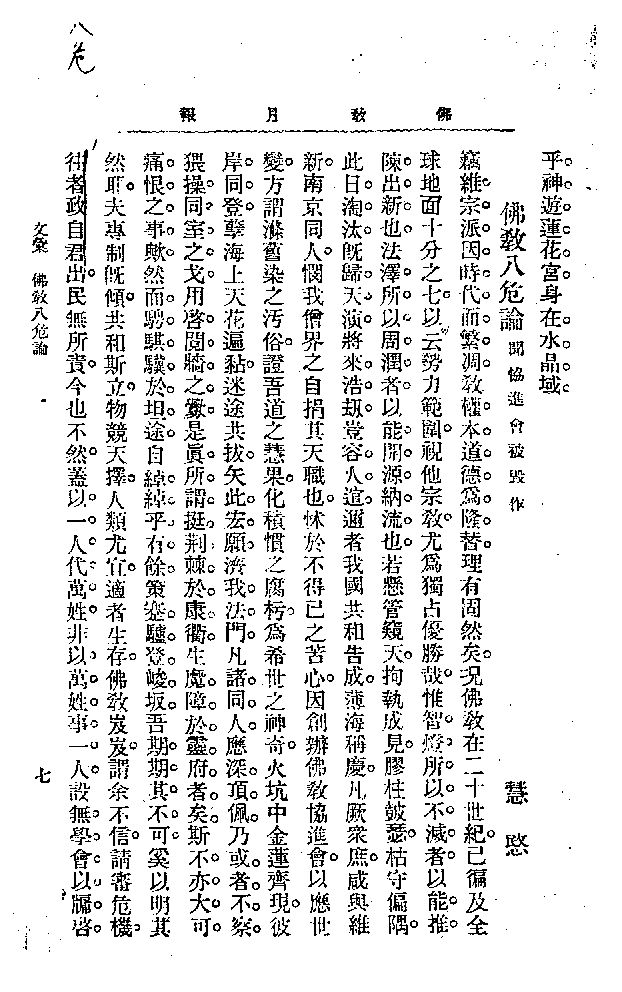 八危
佛教月報
乎。神遊蓮花宮。身在水晶域。
佛教八危論 聞協進會被毀作 慧愍
竊維宗派因時代而繁凋。教權本道德爲隆替。理有固然矣。況佛教在二十世紀。已徧及全
球地面十分之七。以云勢力範圍。視他宗教。尤爲獨占優勝哉。惟智燈所以不滅者。以能推
陳出新也。法澤所以周潤者。以能開源納流也。若懸管窺天。拘執成見。膠柱鼓瑟。枯守偏隅。
此日淘汰。旣歸天演。將來浩刼。豈容人逭。邇者我國共和告成。薄海稱慶。凡厥衆庶。咸與維
新。南京同人。憫我僧界之自捐其天職也。怵於不得已之苦心。因創辦佛教協進會。以應世
變。方謂滌舊染之汚俗。證吾道之慧果。化積慣之腐朽。爲希世之神奇。火坑中金蓮齊現。彼
岸同登。孽海上天花遍黏。迷途共拔矣。此宏願濟我法門。凡諸同人。應深頂佩。乃或者不察。
猥操同室之戈。用啓鬩牆之釁。是眞所謂挺荆棘於康衢。生魔障於靈府者矣。斯不亦大可
痛恨之事歟。然而騁騏驥於坦途。自綽綽乎有餘。策蹇驢登峻坂。吾期期其不可。奚以明其
然耶。夫專制旣傾。共和斯立。物競天擇。人類尤宜。適者生存。佛教岌岌。謂余不信。請審危機。
往者政自君出。民無所責。今也不然。蓋以一人代萬姓。非以萬姓事一人。設無學會以牖啓
文彙 佛教八危論
七